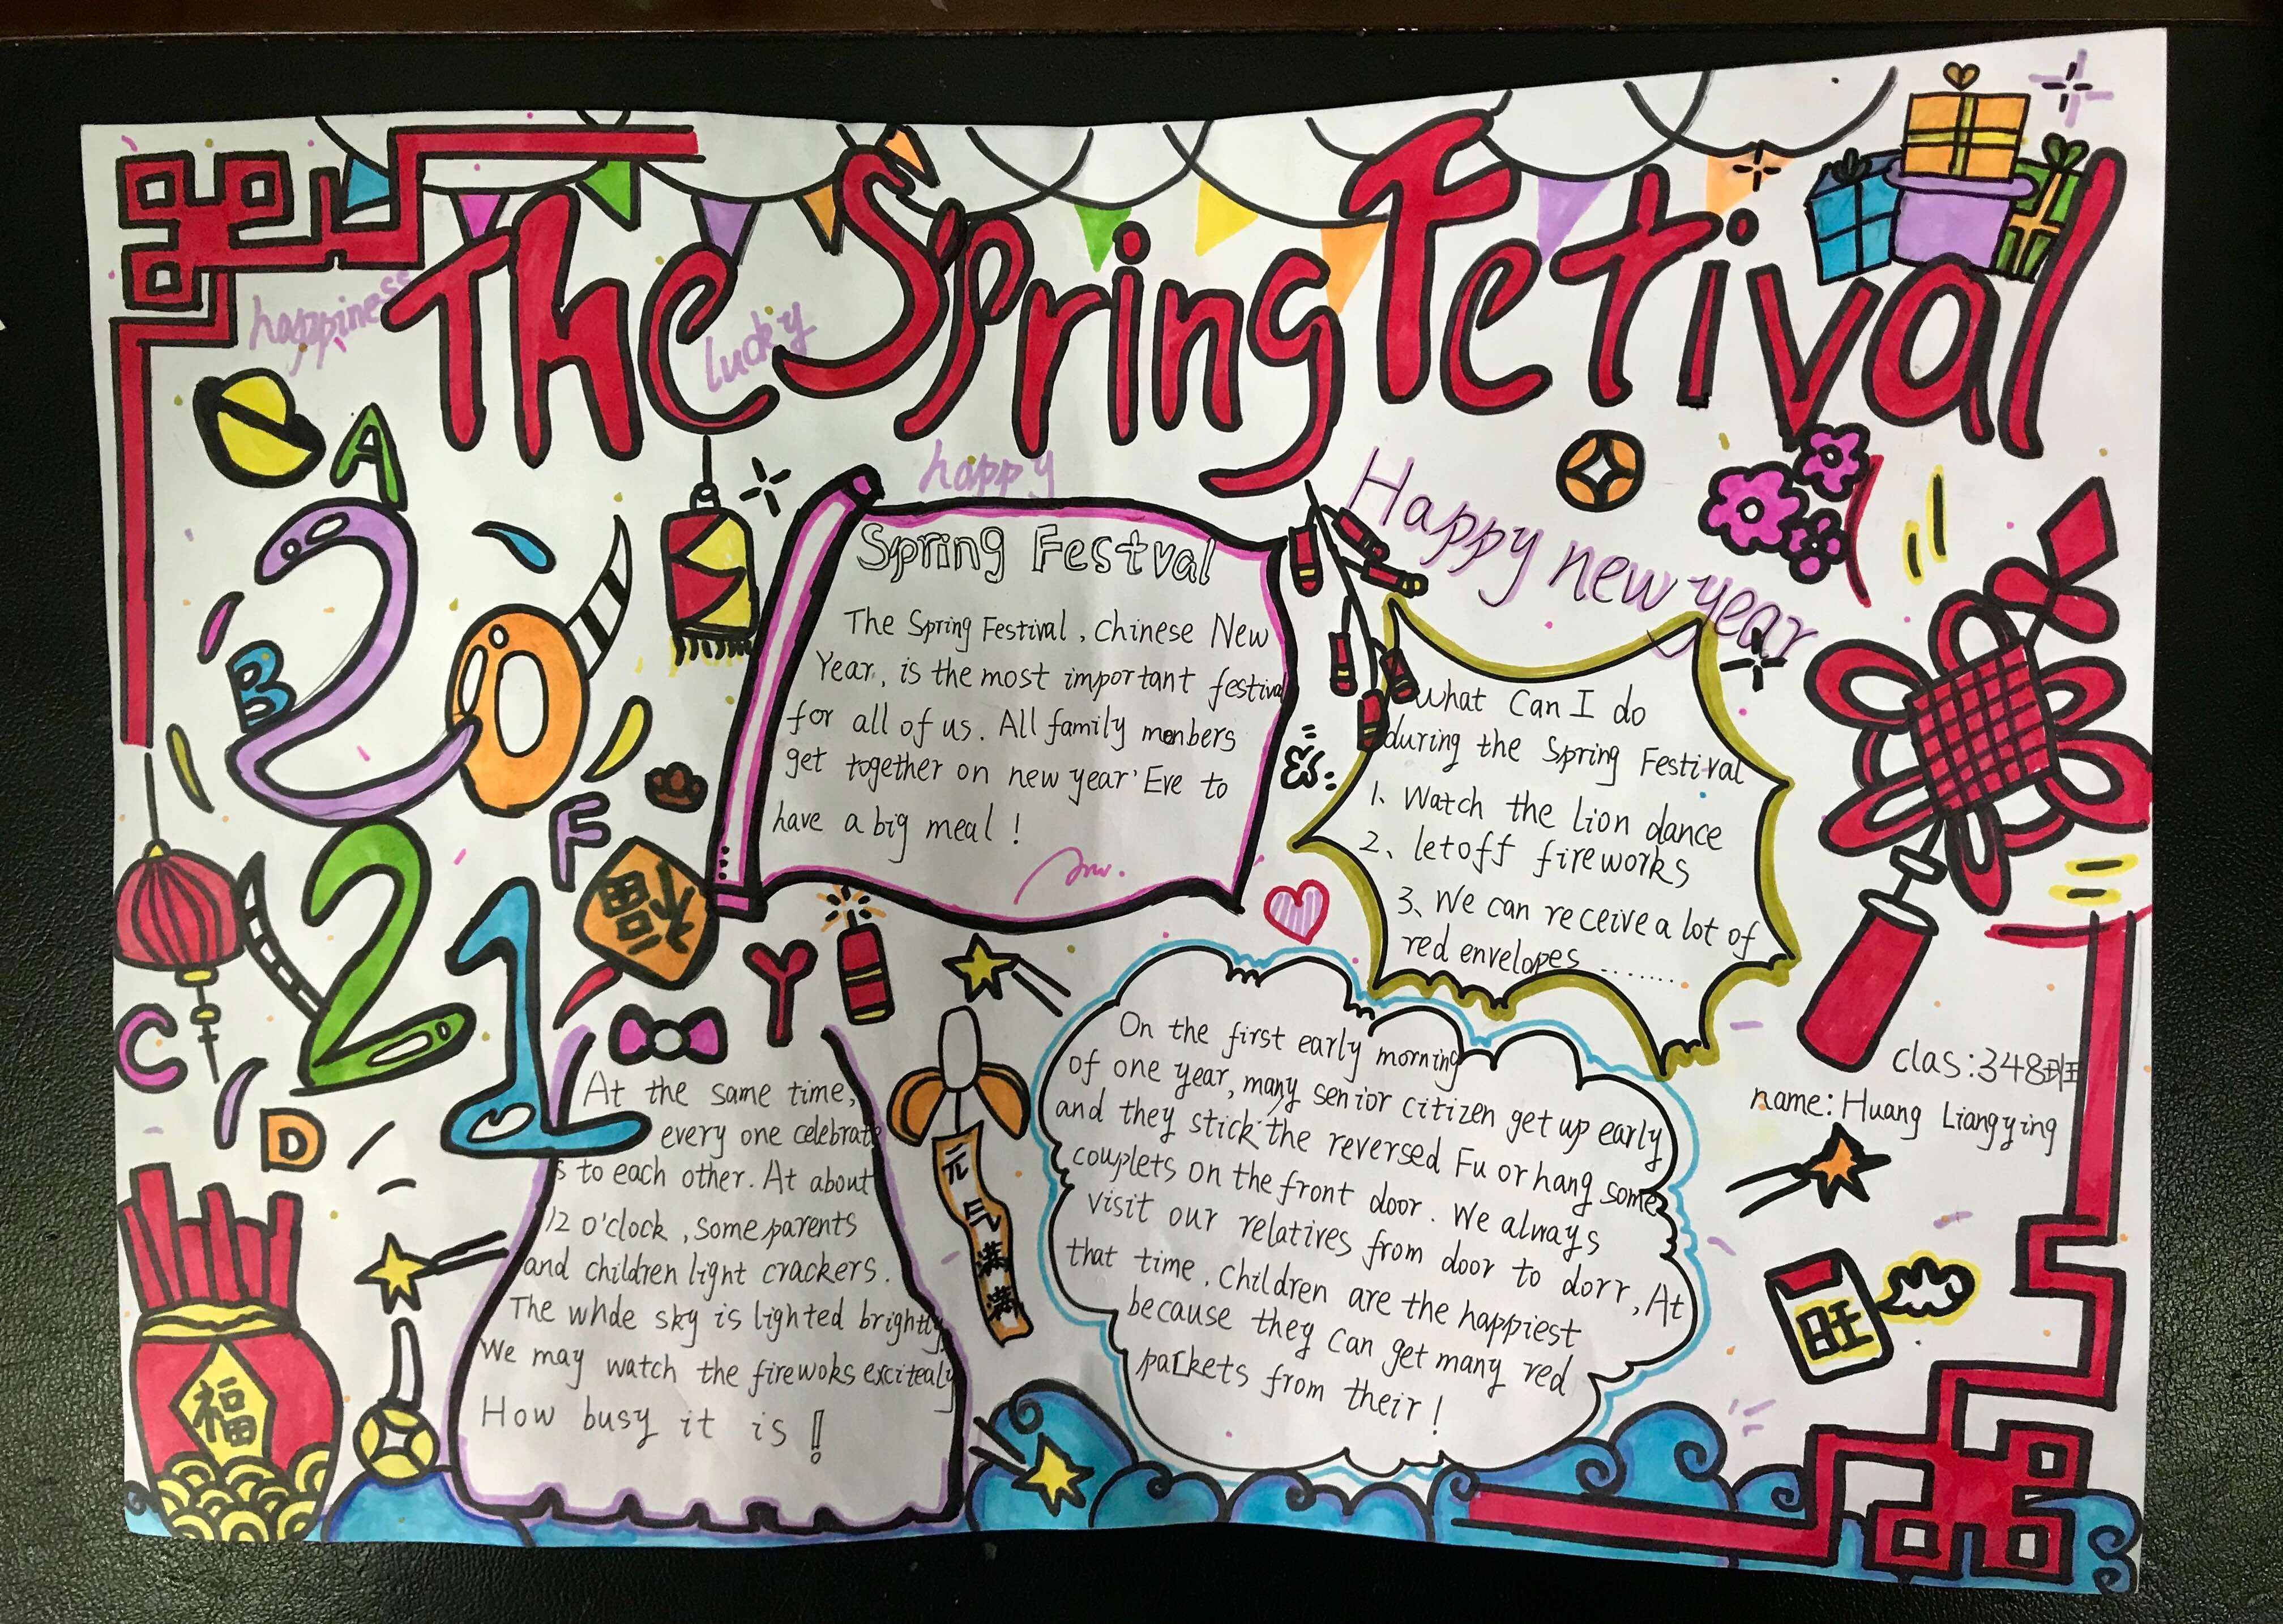 The Spring Fetival
happiness
lucky
happy
Happy new year
A
B
C
D
F
Y
2021
福
Spring Festval
The Spring Festival, Chinese New
Year, is the most important festival
for all of us. All family menbers
get together on new year' Eve to
have a big meal!
what Can I do
during the Spring Festival
1、Watch the Lion dance
2、letoff fireworks
3、We can receive a lot of
red envelopes ........
At the same time,
every one celebrate
s to each other. At about
12 o'clock, some parents
and children light crackers.
The whde sky is lighted brightly,
We may watch the firewoks excitealy
How busy it is!!
元气满满
On the first early morning
of one year, many senior citizen get up early
and they stick the reversed Fu or hang some
couplets on the front door. We always
visit our relatives from door to dorr, At
that time. Children are the happiest
because they can get many red
packets from their!
clas:348班
name: Huang Liangying
福
旺